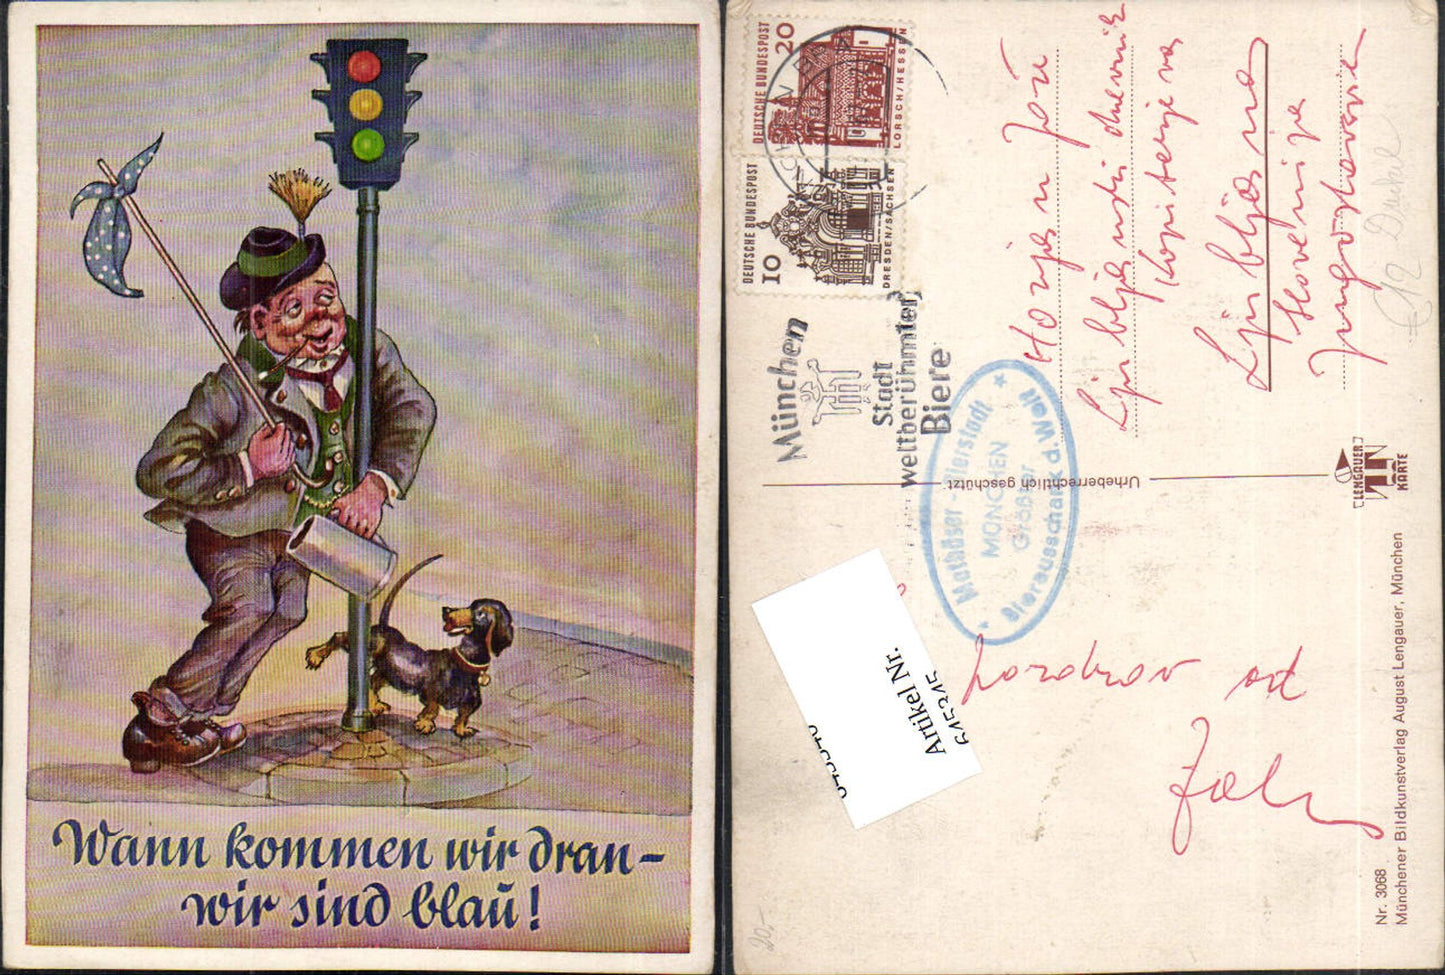 Wann kommen wir dran-
wir sind blau!
DEUTSCHE BUNDESPOST
20
LORSCH/HESSEN
DEUTSCHE BUNDESPOST
10
DRESDEN/SACHSEN
München
Stadt
weltberühmter
Biere
Mathäser-Bierstadt
MÜNCHEN
Größter
Bierausschank d. Welt
Urheberrechtlich geschützt
Ljubljana
Slovenija
Jugoslavia
pozdrav od
Artikel Nr.
645345
LENGAUER
KARTE
Nr. 3068
Münchener Bildkunstverlag August Lengauer, München
20,-